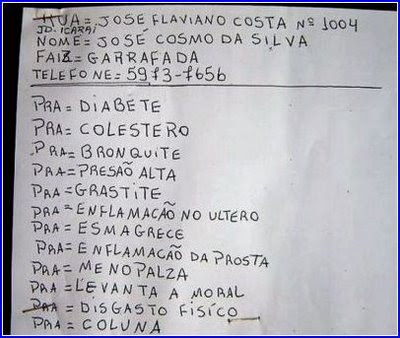 RUA = JOSE FLAVIANO COSTA Nº 1004
JD. ICARAÍ
NOME = JOSÉ COSMO DA SILVA
FAIZ = GARRAFADA
TELEFONE = 5973-7656
PRA = DIABETE
PRA = COLESTERO
PRA = BRONQUITE
PRA = PRESÃO ALTA
PRA = GRASTITE
PRA = ENFLAMACÃO NO ULTERO
PRA = ESMAGRECE
PRA = ENFLAMACÃO DA PROSTA
PRA = MENOPALZA
PRA = LEVANTA A MORAL
PRA = DISGASTO FÍSICO
PRA = COLUNA